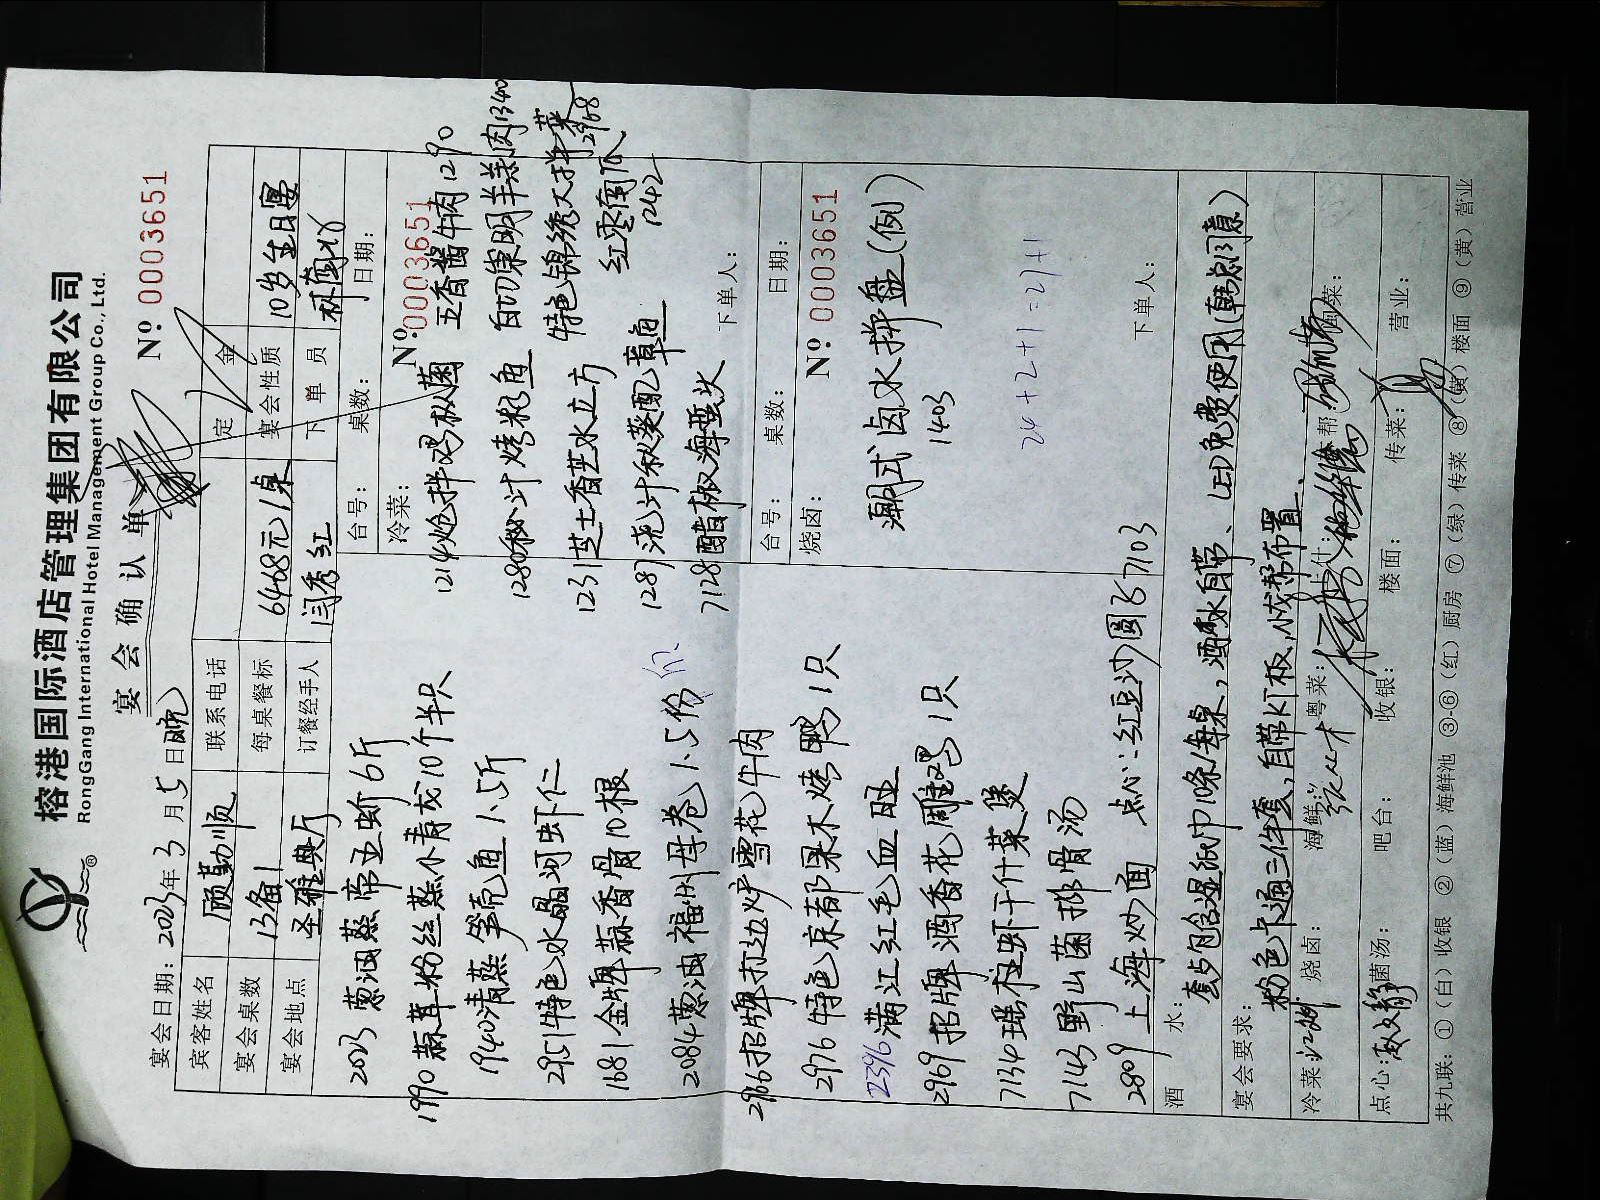 榕港国际酒店管理集团有限公司
RongGang International Hotel Management Group Co., Ltd.
宴会确认单
№ 0003651
宴会日期: 2023年3月5日晚
宾客姓名 顾勤顺 联系电话 定金
宴会桌数 13备1 每桌餐标 6468元/桌 宴会性质 10岁生日宴
宴会地点 圣雅典厅 订餐经手人 闫秀红 下单员
台号: 桌数: 日期:
冷菜: № 0003651
1214炝拌鸡枞菌 五香酱牛肉1290
1280秘汁烤籽鱼 白切崇明羊羔肉1340
1231芝士香芋水立方 特色锦绣大拼菜2968
1287浇汁秋葵配章鱼 红枣南瓜1242
7128醋椒海蜇头
下单人:
台号: 桌数: 日期:
烧卤: № 0003651
潮式卤水拼盘(例)
1403
24+2+1=27+1
下单人:
2023 葱油蒸帝王蚧6斤
1990 蒜茸粉丝蒸小青龙10个半只
1940清蒸笋壳鱼1.5斤
2951特色水晶河虾仁
1681金牌蒜香骨10根
2084葱油福州母卷1.5份
2966招牌打边炉雪花牛肉
2976特色京都果木烤鸭1只
2396满江红毛血旺
2969招牌酒香花雕鸡1只
7134瑶柱虾干什菜煲
7143野山菌排骨汤
2809上海炒面 点心:红豆沙圆子7103
酒水: 套内包含湿纸巾10条/每桌,酒水自带、LED免费使用(韩总同意)
宴会要求: 粉色卡通三件套,自带KT板,小龙帮布置、
冷菜: 烧卤: 海鲜: 粤菜: 上什: 本帮: 闽菜:
点心: 赵文静 菌汤: 吧台: 收银: 楼面: 传菜: 营业:
共九联: ①(白)收银 ②(蓝)海鲜池 ③-⑥(红)厨房 ⑦(绿)传菜 ⑧(黄)楼面 ⑨(黄)营业